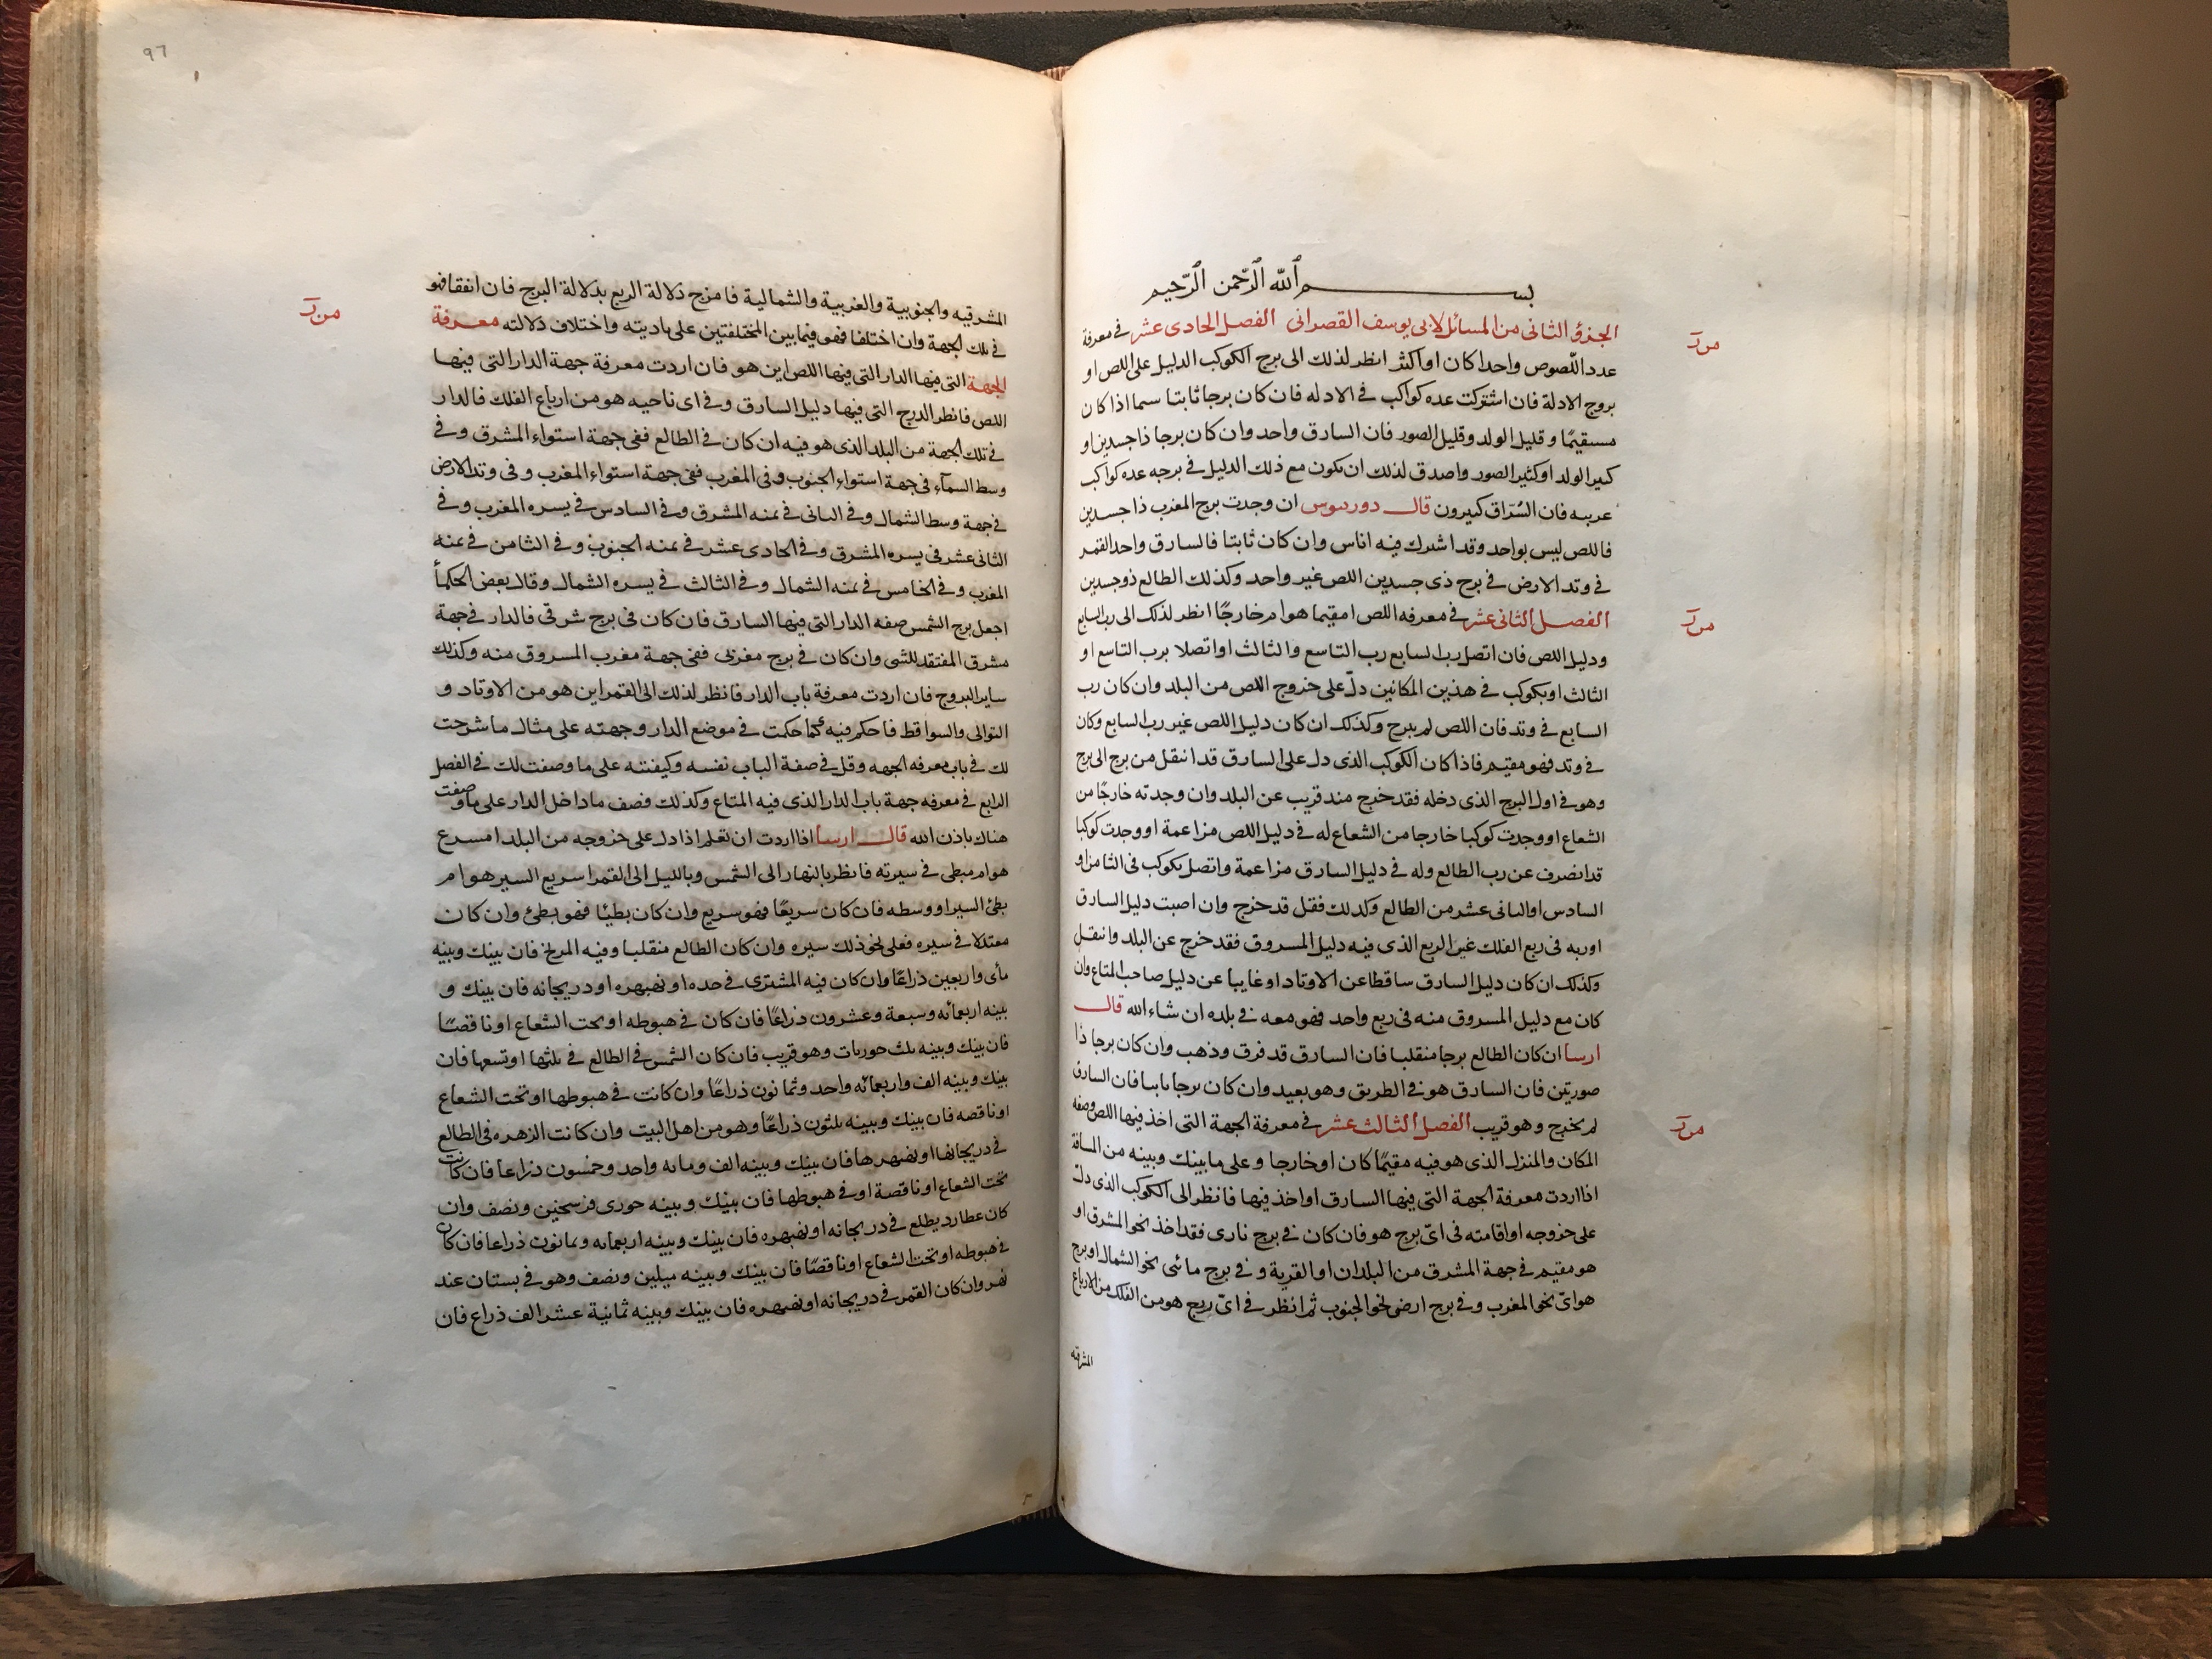 بسم الله الرحمن الرحيم
الجزؤ الثانى من المسائل لابى يوسف القصرانى الفصل الحادى عشر فى معرفة
عدد اللصوص واحدا كان او اكثر انظر لذلك الى برج الكوكب الدليل على اللص او
بروج الادلة فان اشتركت عده كواكب فى الادله فان كان برجا ثابتا سما اذا كان
مستقيمًا و قليل الولد وقليل الصور فان السارق واحد وان كان برجا ذا جسدين او
كبير الولد او كثير الصور واصدق لذلك ان يكون مع ذلك الدليل فى برجه عده كواكب
عربيه فان السُرّاق كبيرون قال دوريوس ان وجدت برج المغرب ذا جسدين
فاللص ليس بواحد وقد اشرك فيه اناس وان كان ثابتا فالسارق واحد القمر
فى وتد الارض فى برج ذى جسدين اللص غير واحد وكذلك الطالع ذو جسدين
من ر
الفصل الثانى عشر فى معرفه اللص امقيما هو ام خارجًا انظر لذلك الى رب السابع
ودليل اللص فان اتصل رب السابع رب التاسع والثالث او اتصلا برب التاسع او
الثالث او بكوكب فى هذين المكانين دلّ على خروج اللص من البلد وان كان رب
السابع فى وتد فان اللص لم يبرح وكذلك ان كان دليل اللص غير رب السابع وكان
فى وتد فهو مقيم فاذا كان الكوكب الذى دل على السارق قد انتقل من برج الى برج
وهو فى اول البرج الذى دخله فقد خرج منذ قريب عن البلد وان وجدته خارجًا من
الشعاع او وجدت كوكبا خارجا من الشعاع له فى دليل اللص مزاعمة او وجدت كوكبا
قد انصرف عن رب الطالع وله فى دليل السارق مزاعمة واتصل بكوكب فى الثامن او
السادس او البانى عشر من الطالع وكدلك فقل قد خرج وان اصبت دليل السارق
او ربه فى ربع الفلك غير الربع الذى فيه دليل المسروق فقد خرج عن البلد وانتقل
وكذلك ان كان دليل السارق ساقطا عن الاوتاد او غايبا عن دليل صاحب المتاع وان
كان مع دليل المسروق منه فى ربع واحد فهو معه فى بلده ان شاء الله قال
ارسا ان كان الطالع برجا منقلبا فان السارق قد فرق وذهب وان كان برجا ذا
صورتين فان السارق هو فى الطريق وهو بعيد وان كان برجا بابتا فان السارق
لم يخرج وهو قريب الفصل الثالث عشر فى معرفة الجهة التى اخذ فيها اللص وصفه
المكان والمنزل الذى هو فيه مقيمًا كان او خارجا و على ما بينك وبينه من المسافة
اذا اردت معرفة الجهة التى فيها السارق او اخذ فيها فانظر الى الكوكب الذى دلّ
على خروجه او اقامته فى اىّ برج هو فان كان فى برج نارى فقد اخذ نحو المشرق او
هو مقيم فى جهة المشرق من البلدان او القرية و فى برج مائى نحو الشمال او برج
هوائ نحو المغرب وفى برج ارضى نحو الجنوب ثم انظر فى اىّ ربع هو من الفلك من الارباع
المشرقيه
٩٦
المشرقيه والجنوبية والغربية والشمالية فامزج دلالة الربع بدلالة البرج فان اتفقا فهو
فى تلك الجهة وان اختلفا فهو فيما بين المختلفتين على باديته واختلاف دلالته معرفة
الجهة التى فيها الدار التى فيها اللص اين هو فان اردت معرفة جهة الدار التى فيها
اللص فانظر الدرج التى فيها دليل السارق وفى اى ناحيه هو من ارباع الفلك فالدار
فى تلك الجهة من البلد الذى هو فيه ان كان فى الطالع ففى جهة استواء المشرق وفى
وسط السمآء فى جهة استواء الجنوب وفى المغرب ففى جهة استواء المغرب وفى وتد الارض
فى جهة وسط الشمال وفى البانى فى يمنه المشرق وفى السادس فى يسره المغرب وفى
الثانى عشر فى يسره المشرق وفى الحادى عشر فى يمنه الجنوب وفى الثامن فى يمنه
المغرب وفى الخامس فى يمنه الشمال وفى الثالث فى يسره الشمال وقال بعض الحكمأ
اجعل برج الشمس صفه الدار التى فيها السارق فان كان فى برج شرقى فالدار فى جهة
مشرق المفتقد للشى وان كان فى برج مغربى ففى جهة مغرب المسروق منه وكذلك
ساير البروج فان اردت معرفة باب الدار فانظر لذلك الى القمر اين هو من الاوتاد و
التوالى والسواقط فاحكم فيه كما حكمت فى موضع الدار وجهته على مثال ما شرحت
لك فى باب معرفه الجهه وقل فى صفة الباب نفسه وكيفيته على ما وصفت لك فى الفصل
الرابع فى معرفه جهة باب الدار الذى فيه المتاع وكذلك فصف ما داخل الدار على ما وصفت
هناك باذن الله قال ارسا اذا اردت ان تعلم اذا دل على خروجه من البلد امسرع
هو ام مبطى فى سيرته فانظر بالنهار الى الشمس وبالليل الى القمر اسريع السير هو ام
بطئ السير او وسطه فان كان سريعًا فهو سريع وان كان بطيئا فهو بطئ وان كان
معتدلا فى سيره فعلى نحو ذلك سيره وان كان الطالع منقلبا وفيه المريخ فان بينك وبينه
مأى واربعين ذراعًا وان كان فيه المشترى فى حده او نهبهره او دريجانه فان بينك و
بينه اربعمائه وسبعة وعشرون ذراعًا فان كان فى هبوطه او تحت الشعاع او ناقصًا
فان بينك وبينه ثلث حوريات وهو قريب فان كان الشمس فى الطالع فى ثلثها او تسعها فان
بينك وبينه الف واربعمائه واحد وثمانون ذراعًا وان كانت فى هبوطها او تحت الشعاع
او ناقصه فان بينك وبينه ثلثون ذراعًا وهو من اهل البيت وان كانت الزهره فى الطالع
فى دريجانها او نهبهرها فان بينك وبينه الف ومائه واحد وخمسون ذراعا فان كانت
تحت الشعاع او ناقصة او فى هبوطها فان بينك وبينه حورى فرسخين ونصف وان
كان عطارد يطلع فى دريجانه او نهبهره فان بينك وبينه اربعمائه وثمانون ذراعا فان كان
فى هبوطه او تحت الشعاع او ناقصًا فان بينك وبينه ميلين ونصف وهو فى بستان عند
نهر وان كان القمر فى دريجانه او نهبهره فان بينك وبينه ثمانية عشر الف ذراع فان